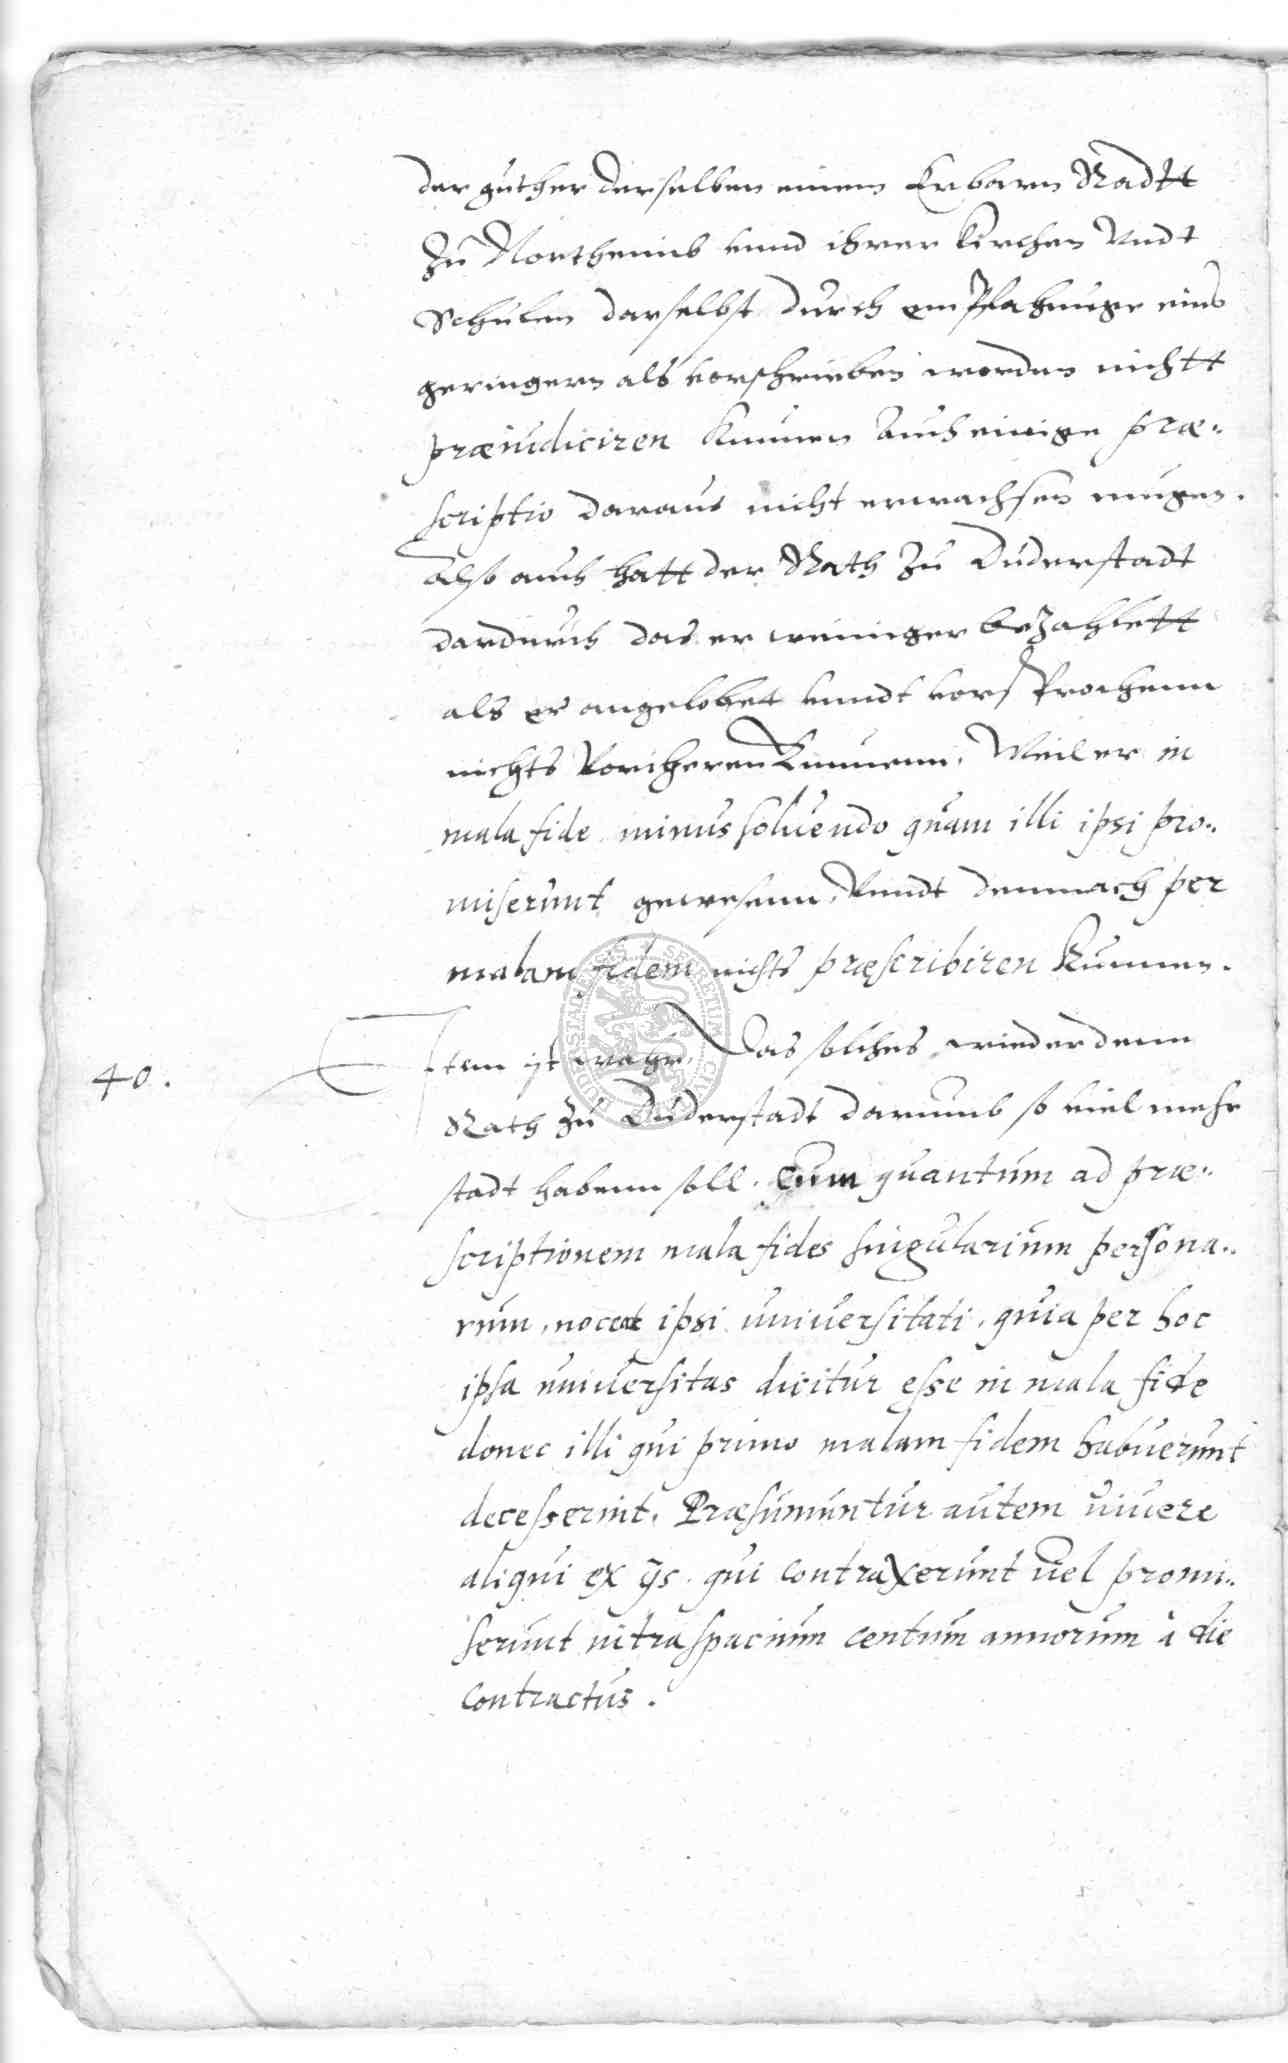 der guther derselben einem Erbarn Radtt
Zu Northeimb vnnd ihrer Kirchen Vndt
Schulen darselbst durch empfahunge eins
geringern als vorschrieben worden nichtt
præiudiciren kunnen Auch einige præ-
scriptio daraus nicht erwachsen mugen.
Also auch hatt der Rath Zu Duderstadt
dardurch das er weiniger bezahlett
als er angelobet vnndt vorsprochenn
nichts kunnenn, Weil er in
mala fide minus soluendo quam illi ipsi pro-
miserunt gewesenn, Vnndt demnach per
malam fidem nichts præscribiren Kunnen.
40. Item ist wahr, Das solches wieder denn
Rath zu Duderstadt darumb so viel mehr
stadt habenn soll. Cum quantum ad præ-
scriptionem mala fides singularium persona-
rum, noceat ipsi uniuersitati, quia per hoc
ipsa uniuersitas dicitur esse in mala fide
donec illi qui primo malam fidem habuerunt
decesserint, Præsumuntur autem uiuere
aliqui ex ijs qui contraxerunt uel promi-
serunt vltra spacium centum annorum à die
contractus.